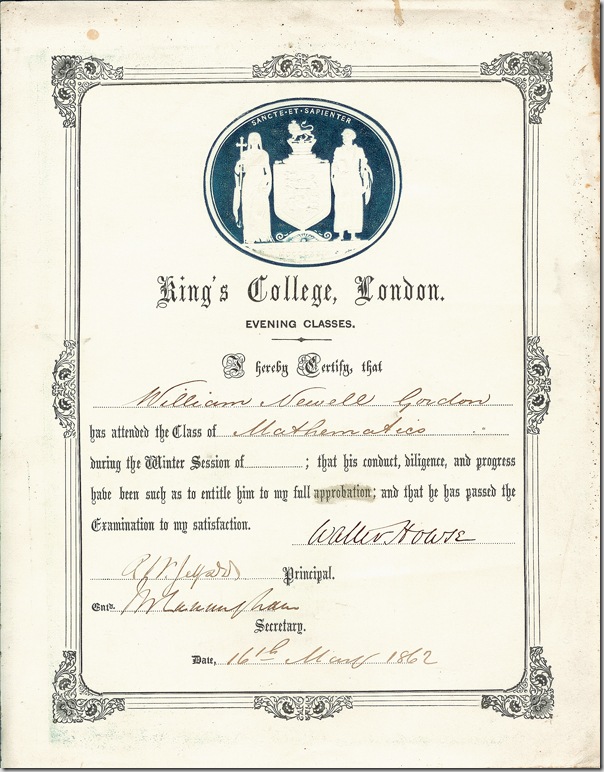 SANCTE·ET·SAPIENTER
King's College, London.
EVENING CLASSES.
I hereby Certify, that
William Newell Gordon
has attended the Class of Mathematics
during the Winter Session of ; that his conduct, diligence, and progress
have been such as to entitle him to my full approbation; and that he has passed the
Examination to my satisfaction.
Walter Howse
Principal.
Entd.
Secretary.
Date, 16th May 1862